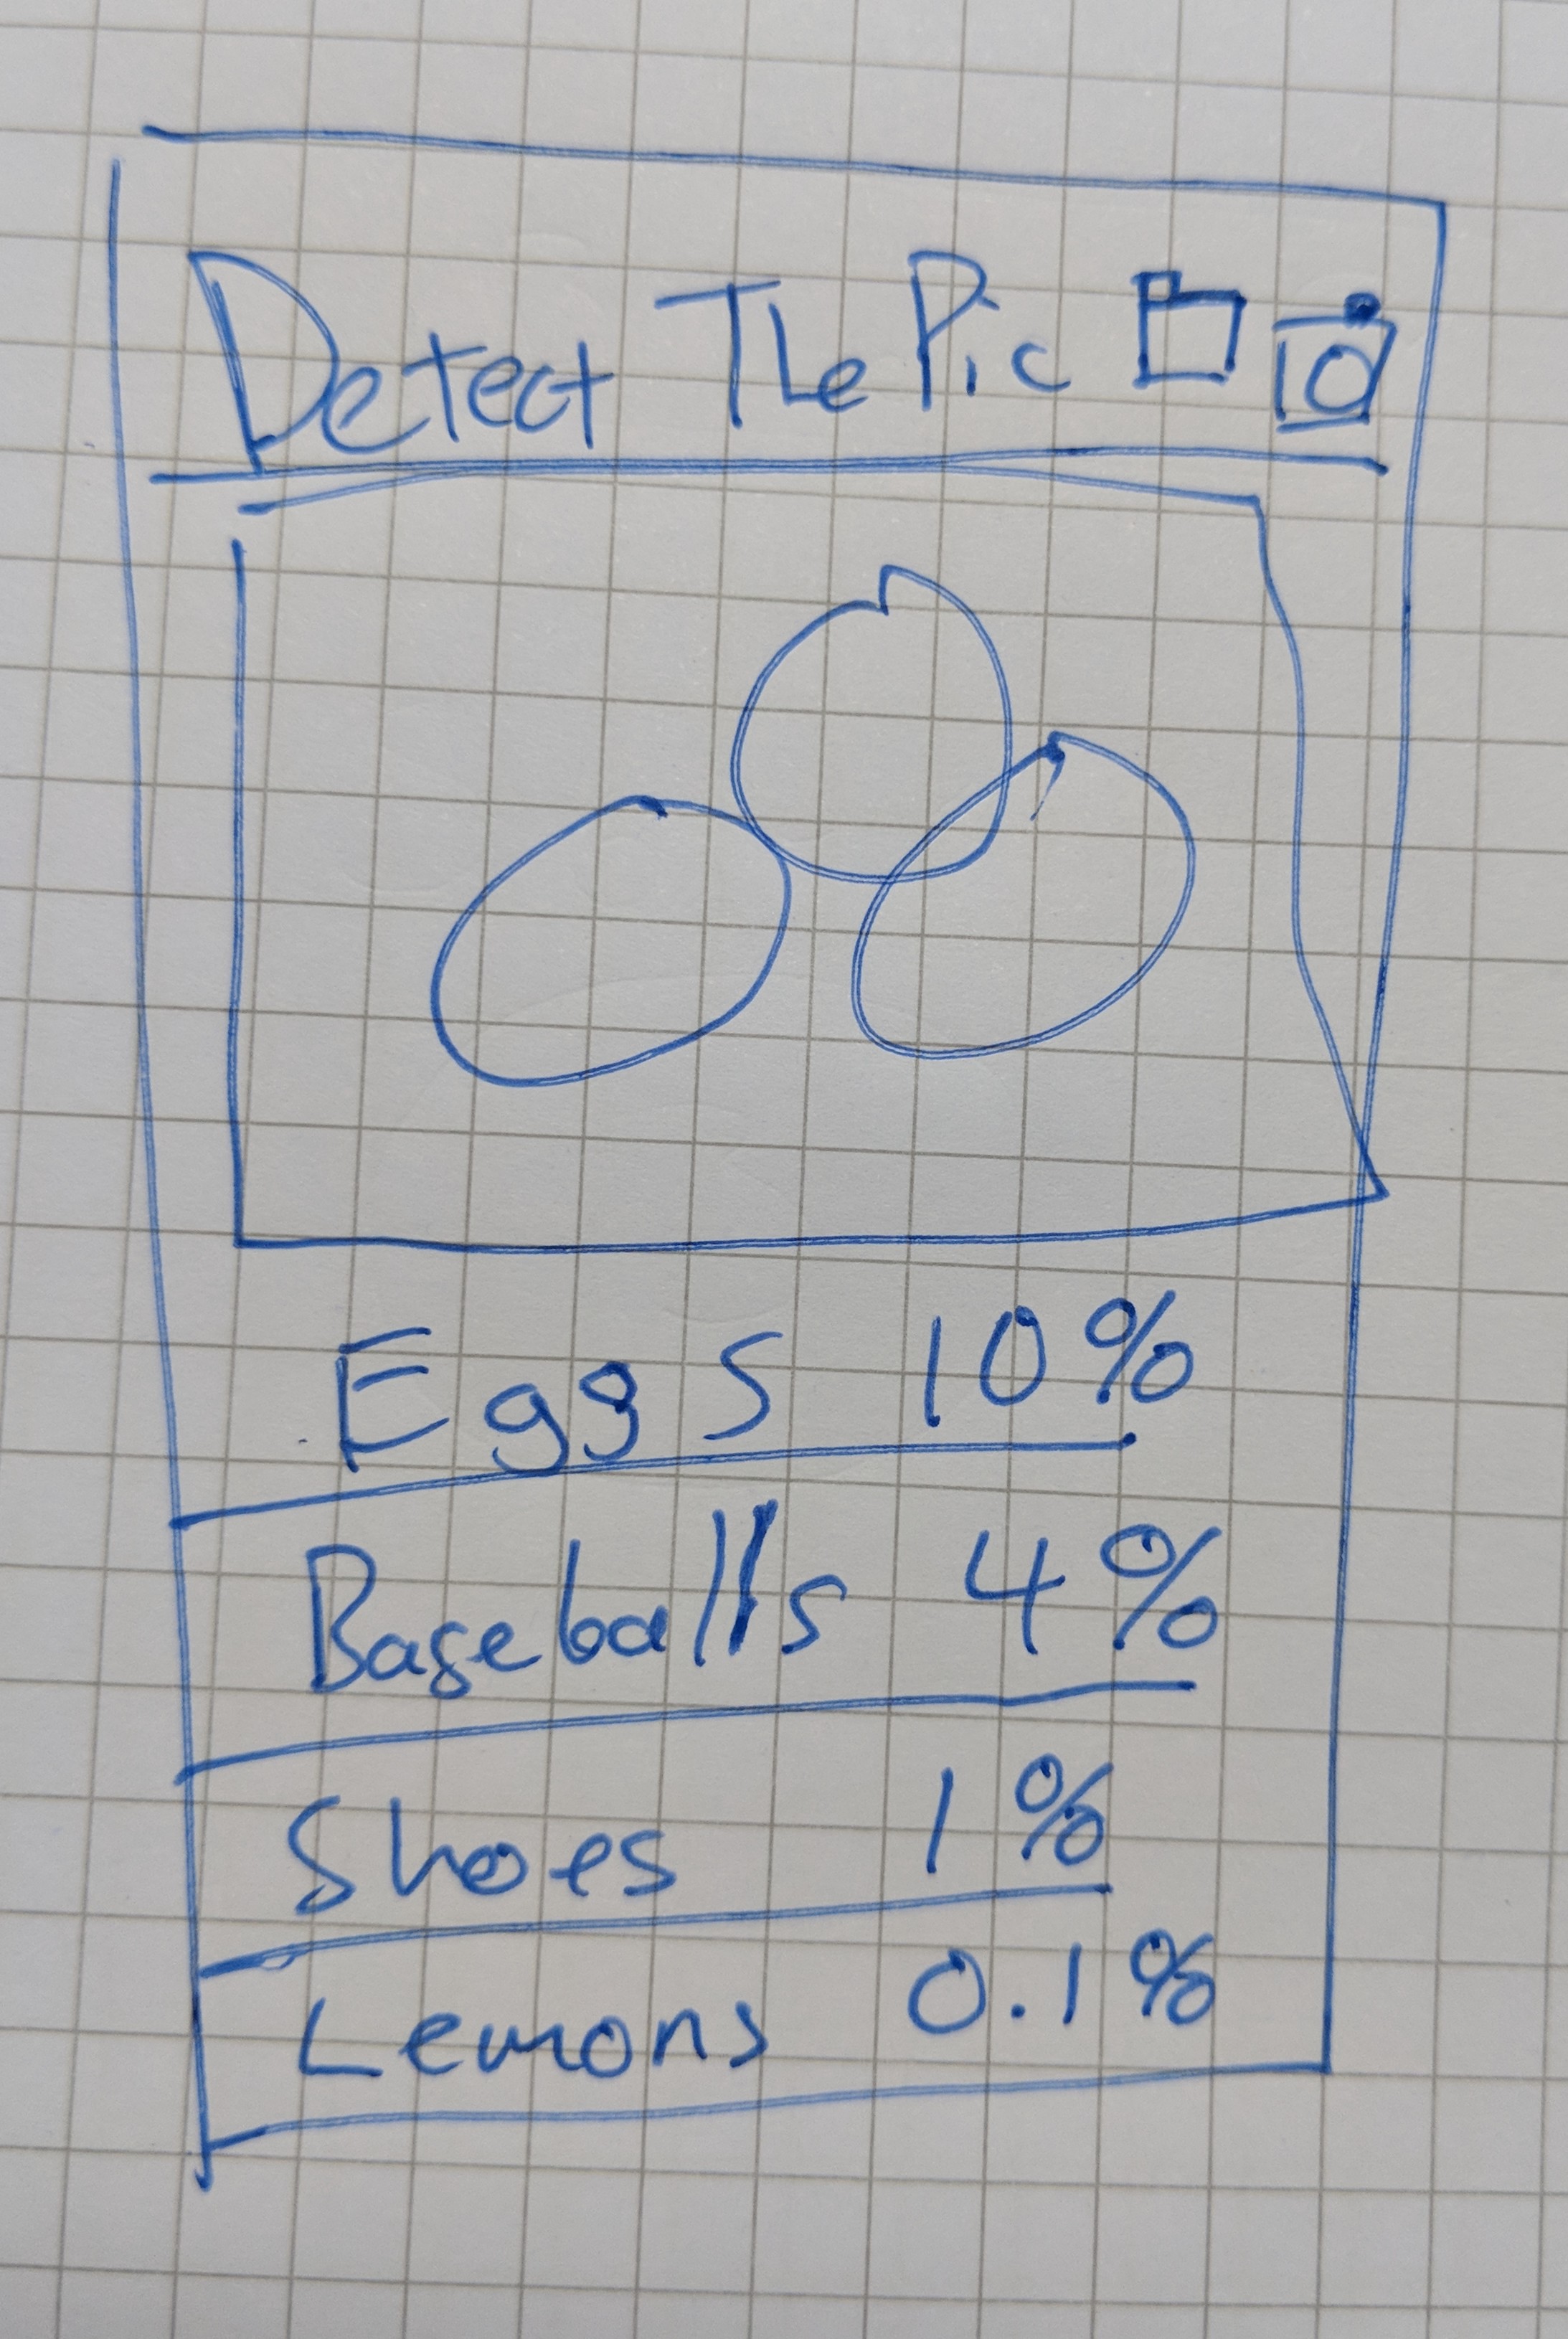 Detect The Pic
Eggs 10%
Baseballs 4%
Shoes 1%
Lemons 0.1%